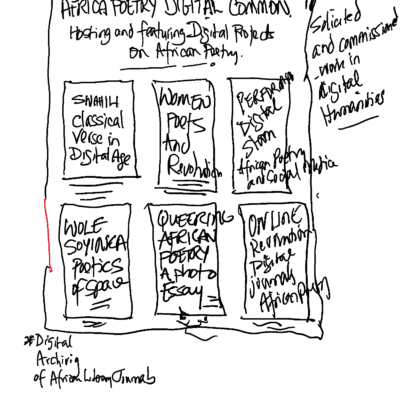 AFRICA POETRY DIGITAL COMMON
Hosting and featuring Digital Projects
on African Poetry.
Solicited
and commissioned
work in
digital
Humanities
SWAHILI
Classical
Verse in
Digital Age
WOMEN
Poets
And
Revolution
Digital
African Poetry
and Social Justice
WOLE
SOYINKA
Poetics
of space
QUEERING
AFRICAN
POETRY
A photo
Essay
ONLINE
Revolution
Digital
journals
African Poetry
*Digital
Archiving
of African Literary Journals